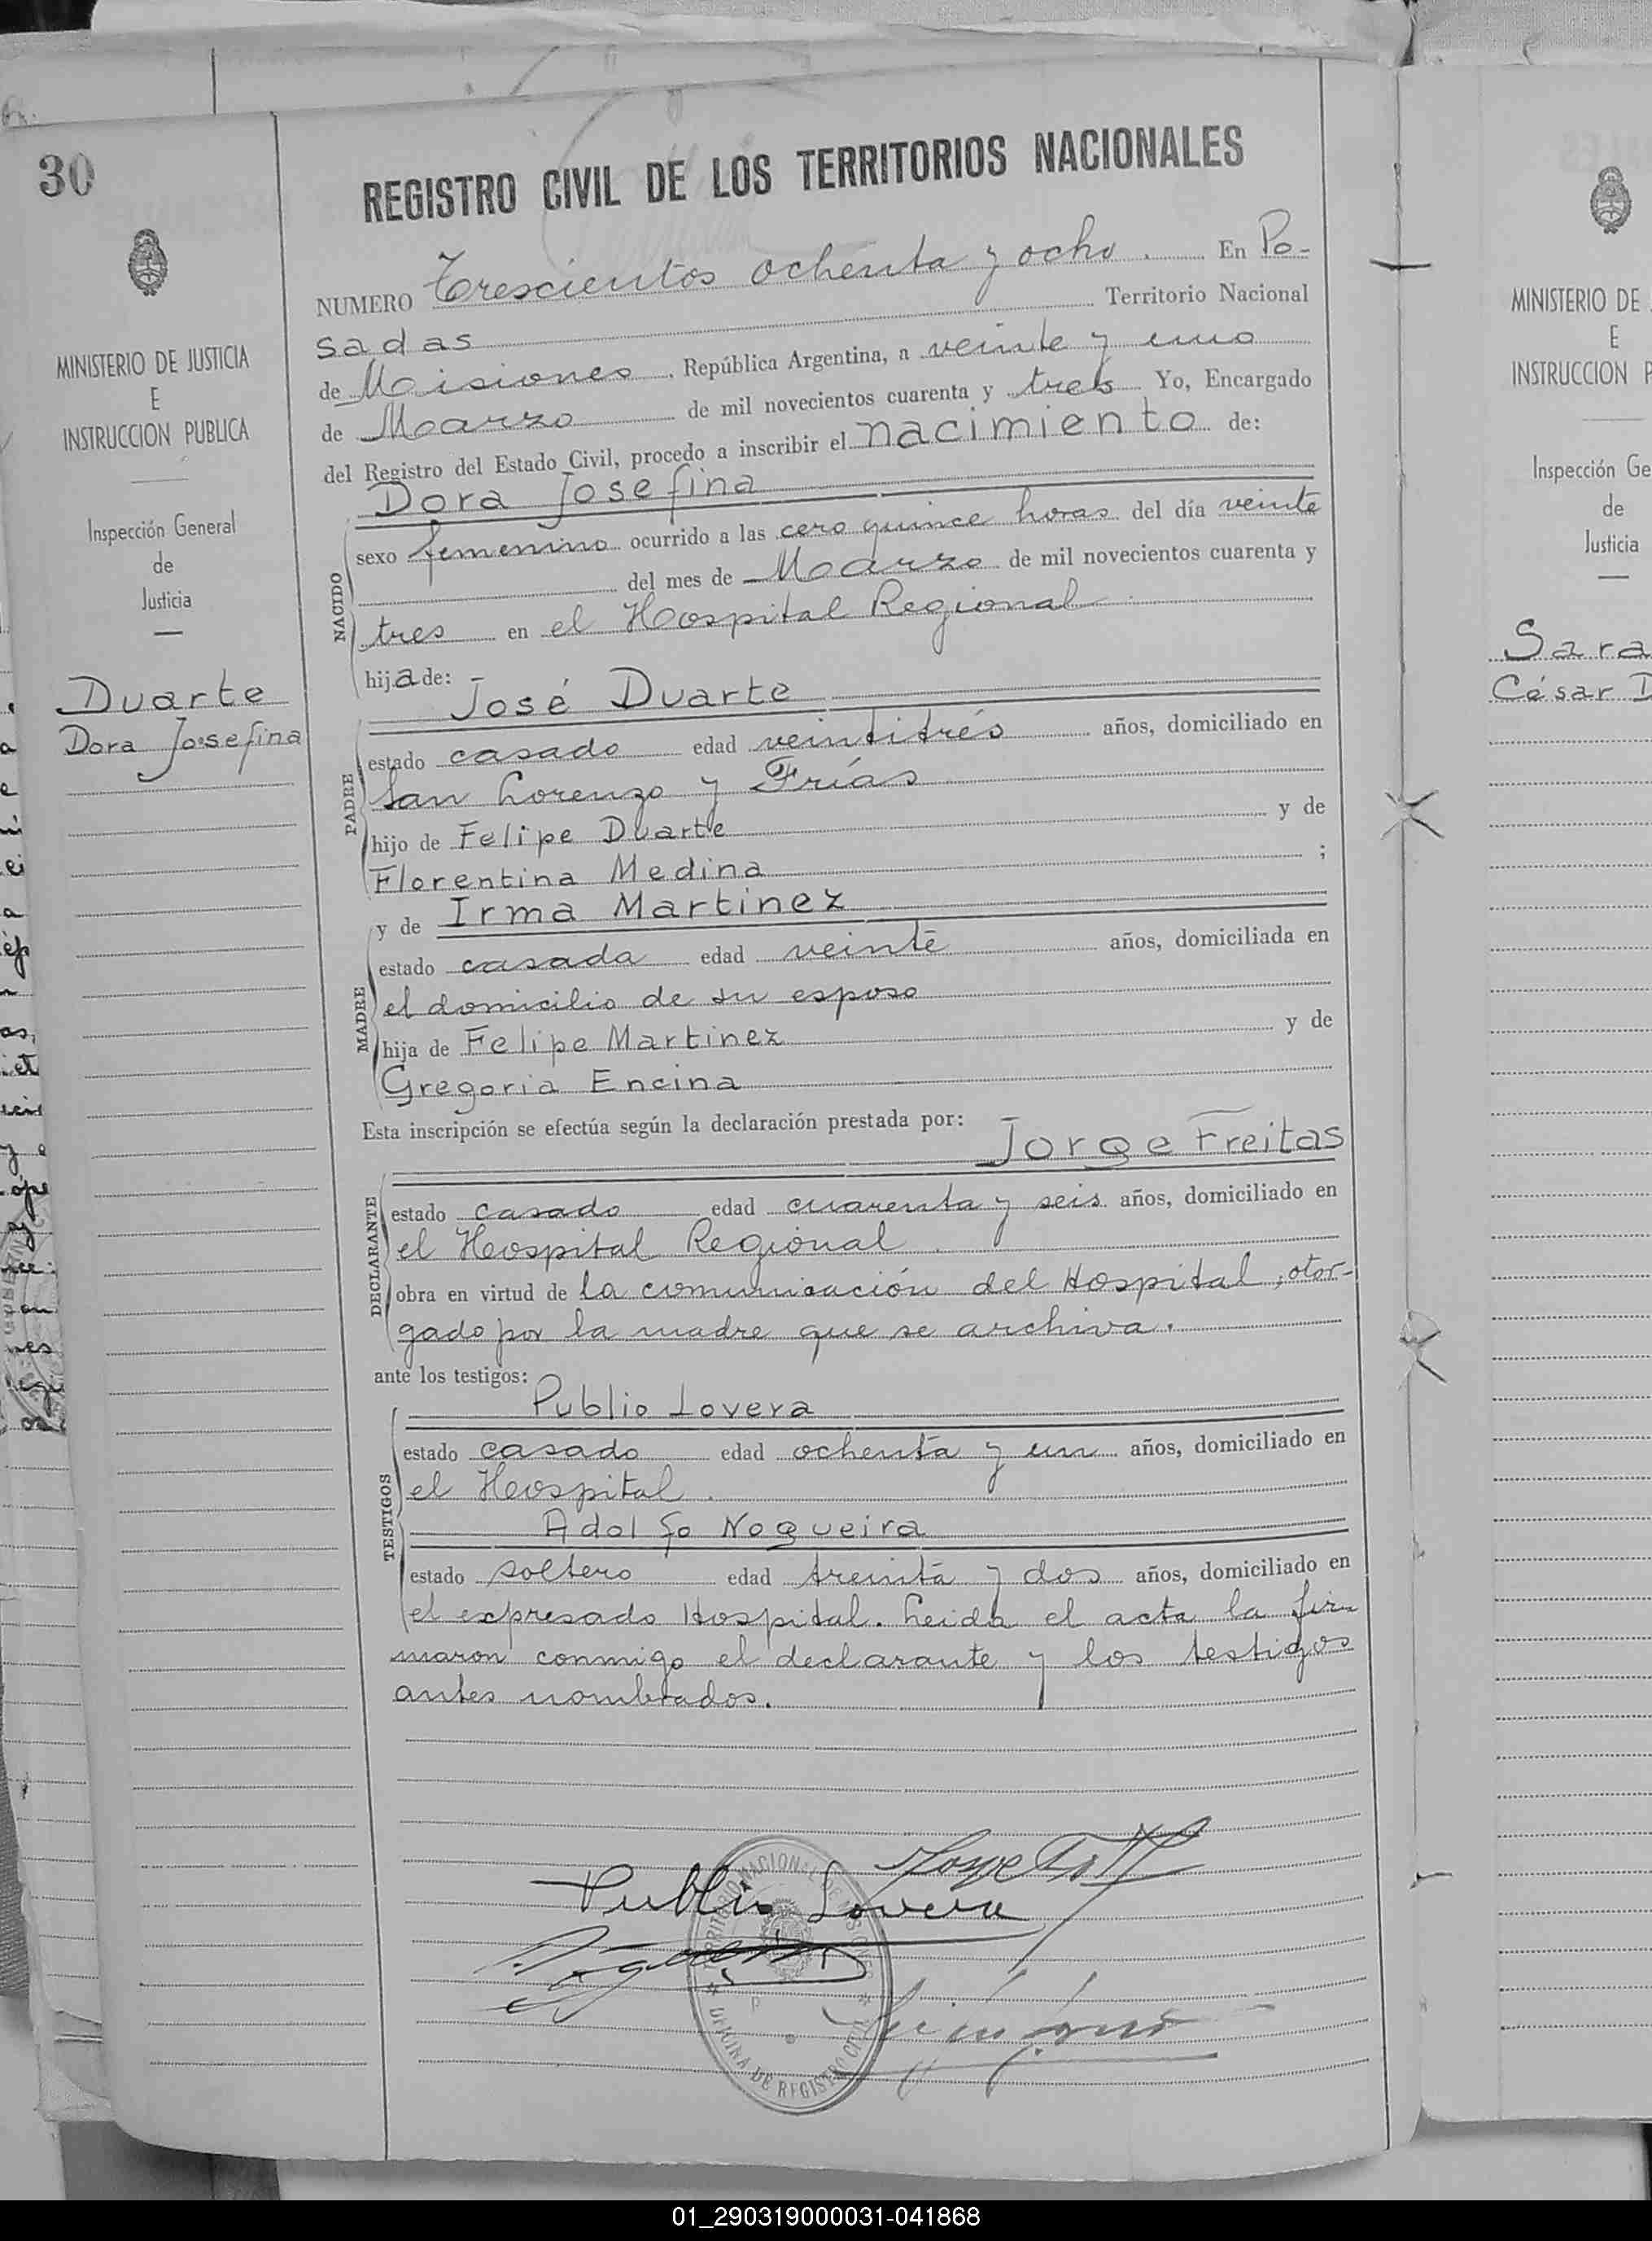 30
MINISTERIO DE JUSTICIA
E
INSTRUCCION PUBLICA
Inspección General
de
Justicia
Duarte
Dora Josefina
REGISTRO CIVIL DE LOS TERRITORIOS NACIONALES
NUMERO Trescientos ochenta y ocho. En Po-
sadas Territorio Nacional
de Misiones. República Argentina, a veinte y uno
de Marzo de mil novecientos cuarenta y tres Yo, Encargado
del Registro del Estado Civil, procedo a inscribir el nacimiento de:
Dora Josefina
NACIDO
sexo femenino ocurrido a las cero quince horas del día veinte
del mes de Marzo de mil novecientos cuarenta y
tres en el Hospital Regional
hija de: José Duarte
PADRE
estado casado edad veintitrés años, domiciliado en
San Lorenzo y Frías
hijo de Felipe Duarte y de
Florentina Medina ;
y de Irma Martinez
MADRE
estado casada edad veinte años, domiciliada en
el domicilio de su esposo
hija de Felipe Martinez y de
Gregoria Encina
Esta inscripción se efectúa según la declaración prestada por:
Jorge Freitas
DECLARANTE
estado casado edad cuarenta y seis años, domiciliado en
el Hospital Regional.
obra en virtud de la comunicación del Hospital, otor-
gado por la madre que se archiva.
ante los testigos:
Publio Lovera
TESTIGOS
estado casado edad ochenta y un años, domiciliado en
el Hospital.
Adolfo Nogueira
estado soltero edad treinta y dos años, domiciliado en
el expresado Hospital. Leida el acta la fir-
maron conmigo el declarante y los testigos
antes nombrados.
Publio Lovera
TERRITORIO NACIONAL DE MISIONES
OFICINA DE REGISTRO CIVIL
MINISTERIO DE
E
INSTRUCCION P
Inspección Ge
de
Justicia
Sara
César D
01_290319000031-041868